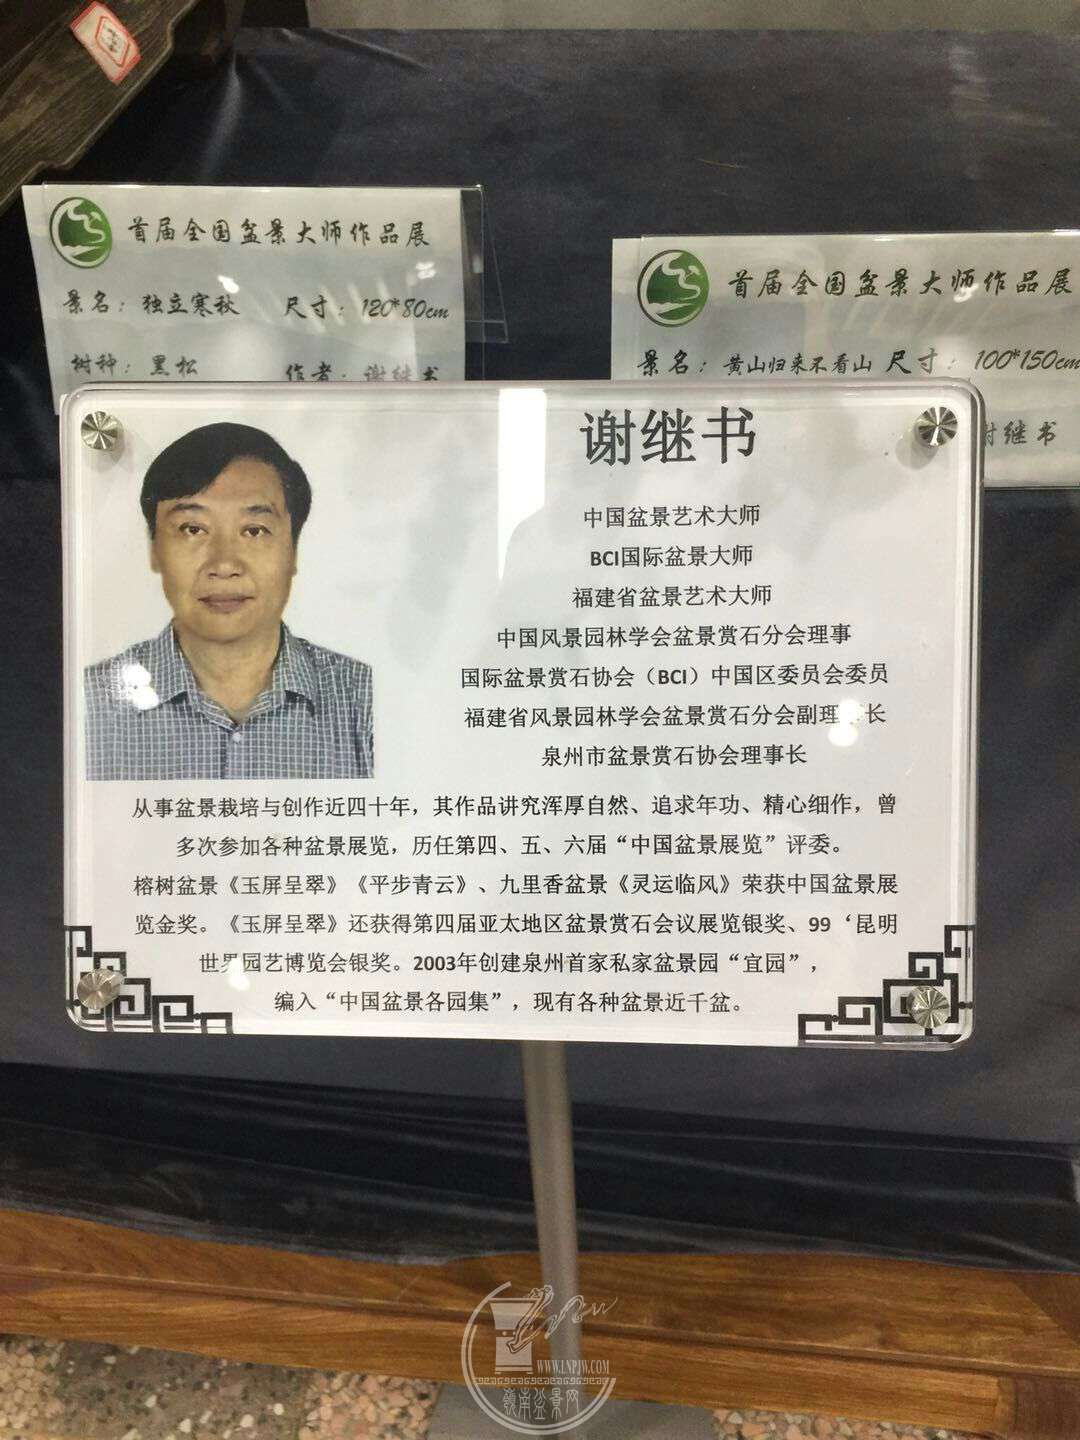 首届全国盆景大师作品展
景名：独立寒秋 尺寸：120*80cm
树种：黑松 作者：谢继书
首届全国盆景大师作品展
景名：黄山归来不看山 尺寸：100*150cm
谢继书
谢继书
中国盆景艺术大师
BCI国际盆景大师
福建省盆景艺术大师
中国风景园林学会盆景赏石分会理事
国际盆景赏石协会（BCI）中国区委员会委员
福建省风景园林学会盆景赏石分会副理事长
泉州市盆景赏石协会理事长
从事盆景栽培与创作近四十年，其作品讲究浑厚自然、追求年功、精心细作，曾
多次参加各种盆景展览，历任第四、五、六届“中国盆景展览”评委。
榕树盆景《玉屏呈翠》《平步青云》、九里香盆景《灵运临风》荣获中国盆景展
览金奖。《玉屏呈翠》还获得第四届亚太地区盆景赏石会议展览银奖、99‘昆明
世界园艺博览会银奖。2003年创建泉州首家私家盆景园“宜园”，
编入“中国盆景各园集”，现有各种盆景近千盆。
WWW.LNPJW.COM
嶺南盆景网